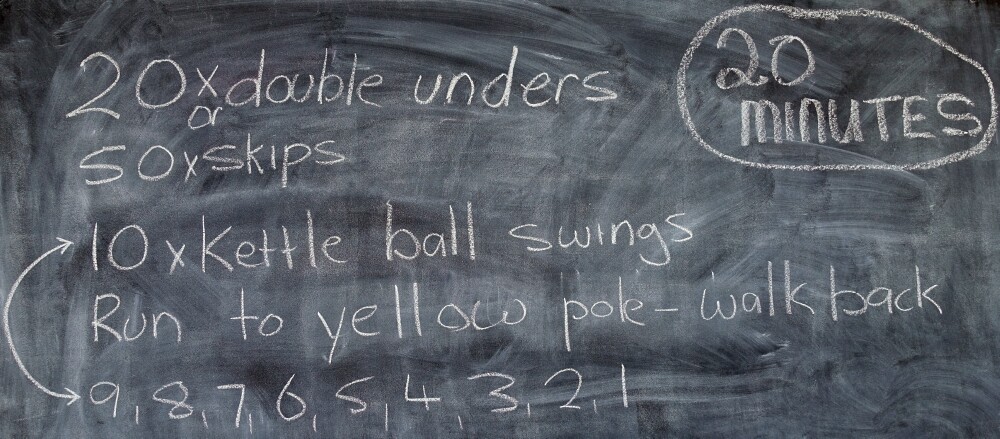 20 x double unders
or
50 x skips
20
MINUTES
10 x Kettle ball swings
Run to yellow pole - walk back
9, 8, 7, 6, 5, 4, 3, 2, 1